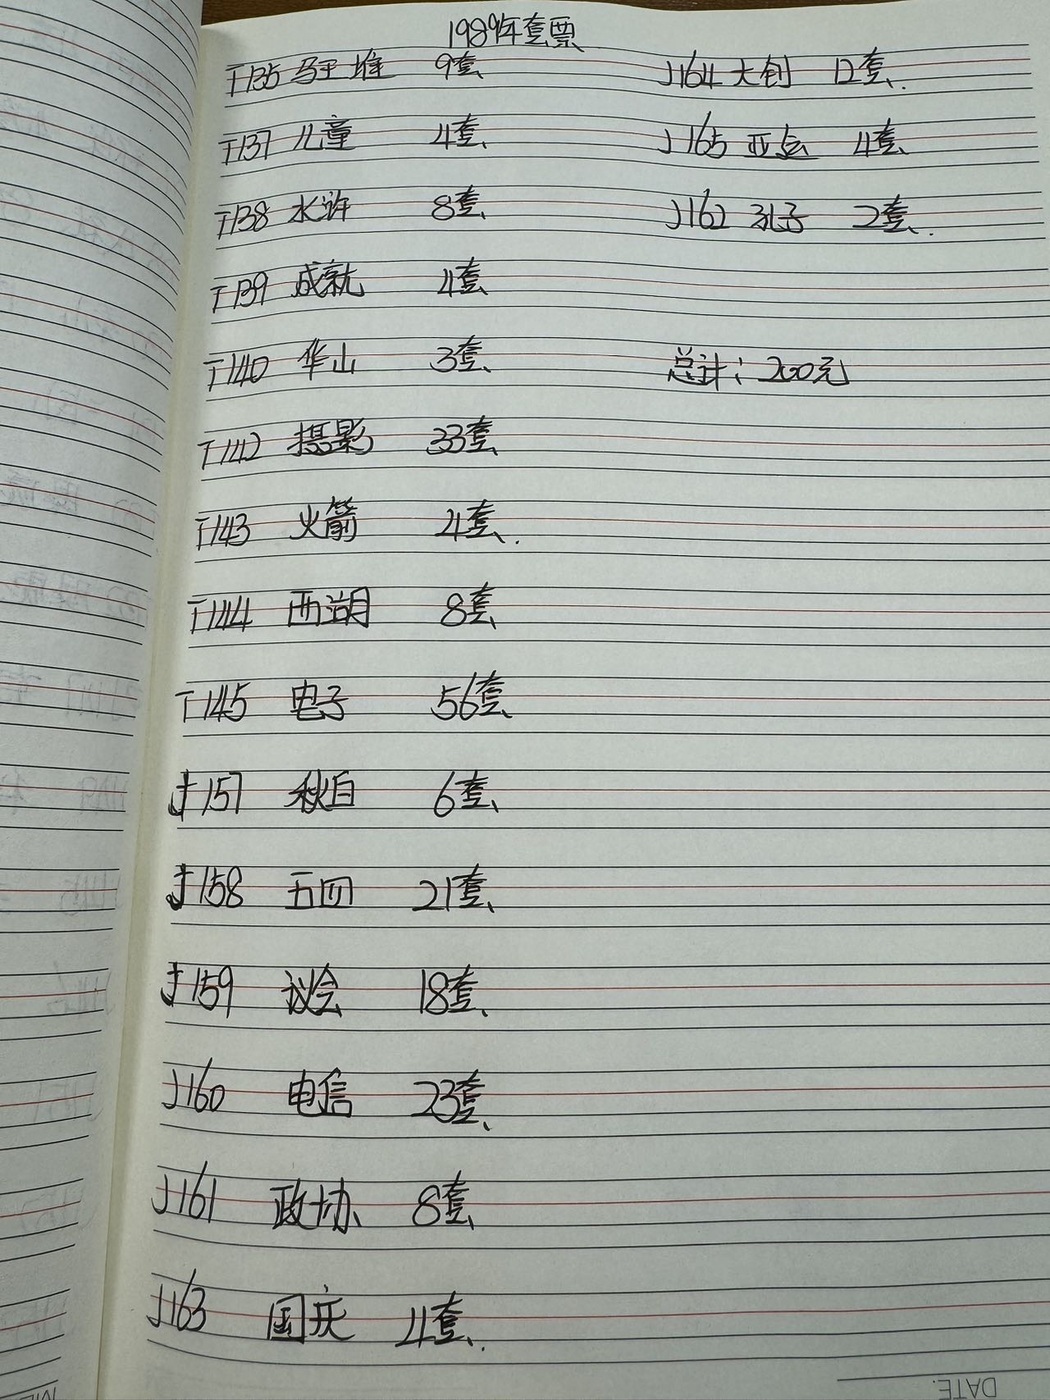 1989年套票
T135 马王堆 9套、
T137 儿童 4套、
T138 水浒 8套、
T139 成就 4套
T140 华山 3套、
T142 摄影 33套、
T143 火箭 4套、.
T144 西湖 8套、
T145 电子 56套、
J157 秋白 6套、
J158 五四 21套、
J159 议会 18套、
J160 电信 23套、
J161 政协 8套、
J163 国庆 4套、.
J164 大创 12套、.
J165 亚运 4套、
J162 孔子 2套、.
总计：200元
DATE.